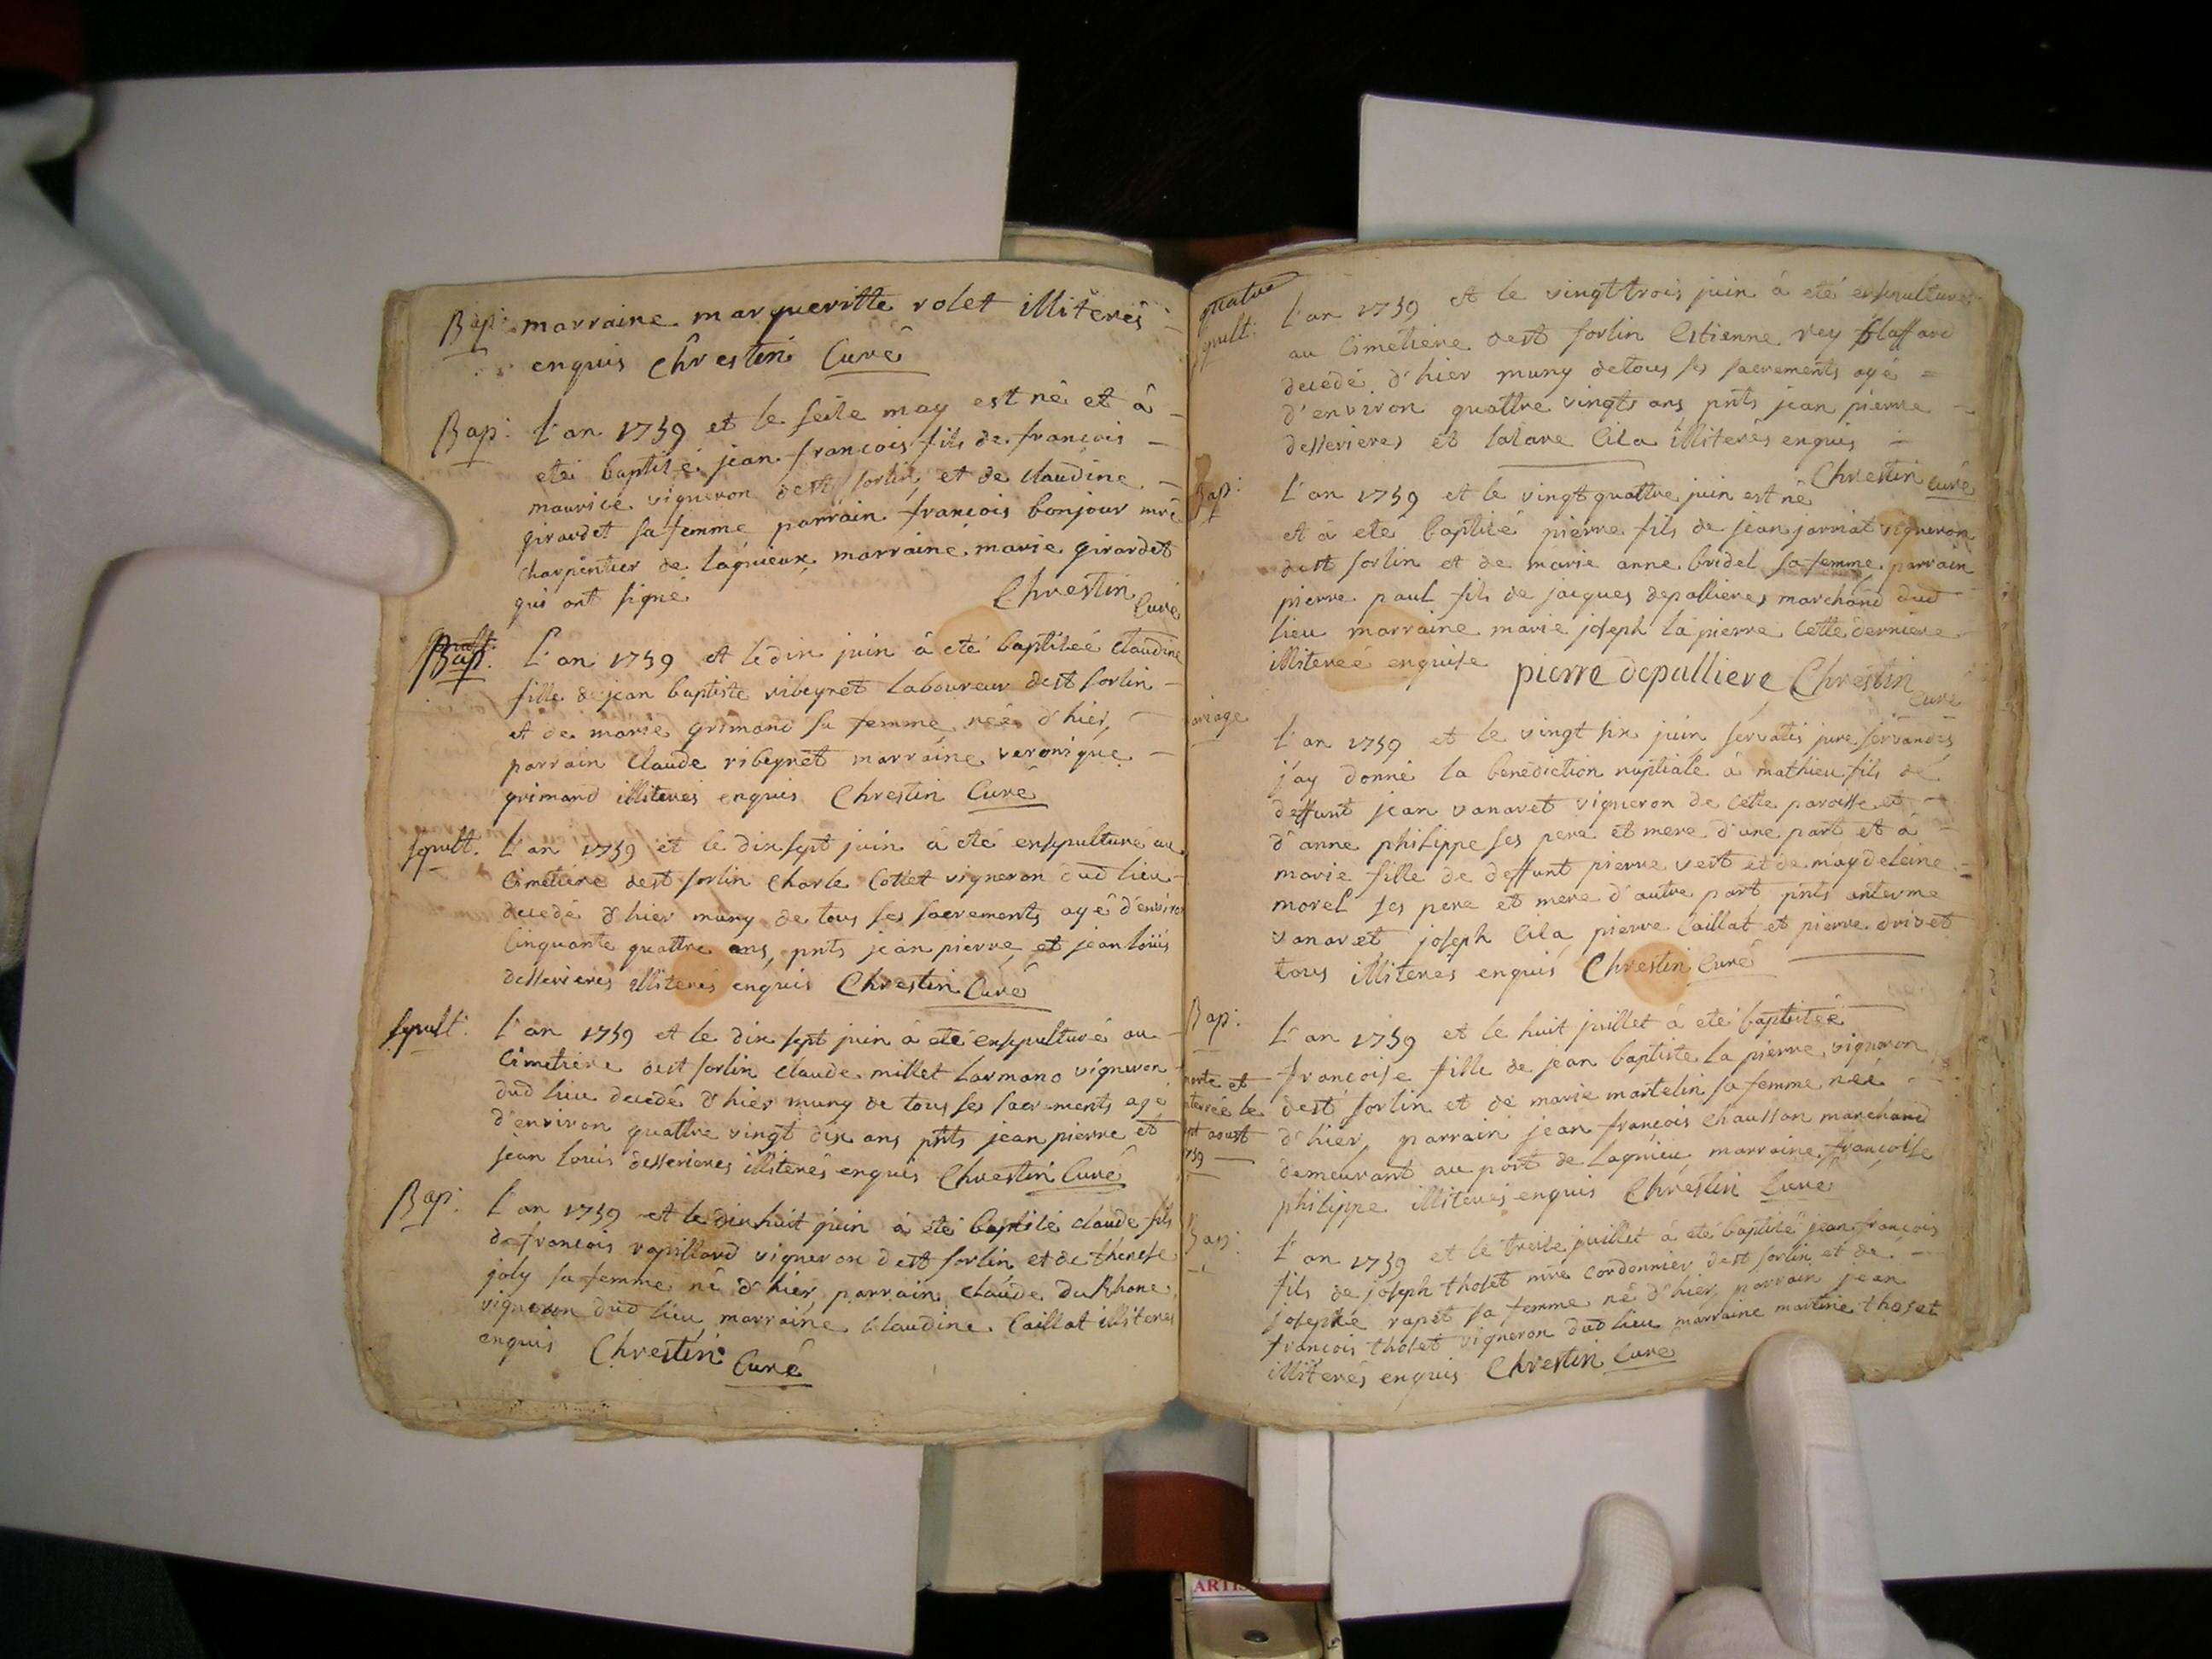 Bap: marraine margueritte rolet illiterés
enquis Chrestin Curé
Bap: L'an 1759 et le seise may est né et à
eté baptisé jean francois fils de francois
maurice vigneron dest sorlin et de claudine
giraudet sa femme parrain francois bonjour mre
charpentier de lagnieux marraine marie girardet
qui ont signé Chrestin Curé
Bap. L'an 1759 et le dix juin à eté baptiseé claudine
fille de jean baptiste ribeyret laboureur dest sorlin
et de marie grimand sa femme neé d'hier,
parrain claude ribeyret marraine veronique
grimand illiterés enquis Chrestin Curé
sepult. L'an 1759 et le dix sept juin à eté ensepulturé au
cimetiere dest sorlin Charle Cottet vigneron dud lieu
decedé d'hier muny de tous ses sacrements agé d'environ
cinquante quattre ans, pnts jean pierre et jean loüis
desserieres illiterés enquis Chrestin Curé
sepult: L'an 1759 et le dix sept juin à eté ensepulturé au
Cimetiere dest sorlin claude millet larmano vigneron
dud lieu decedé d'hier muny de tous ses sacrements agé
d'environ quattre vingt dix ans pnts jean pierre et
jean louis desserieres illiterés enquis Chrestin Curé
Bap: L'an 1759 et le dix huit juin à eté baptisé claude fils
de francois rapillard vigneron dest sorlin et de therese
joly sa femme né d'hier parrain claude du Rhone
vigneron dud lieu marraine claudine Caillat illiterés
enquis Chrestin Curé
quatre
sepult: L'an 1759 et le vingt trois juin à eté ensepulturé
au Cimetiere dest sorlin Estienne rey
decedé d'hier muny de tous ses sacrements agé
d'environ quattre vingts ans pnts jean pierre
desserieres et Cila illiterés enquis
Chrestin Curé
Bap: L'an 1759 et le vingt quattre juin est né
et à eté baptisé pierre fils de jean jarniat vigneron
dest sorlin et de marie anne bridel sa femme parrain
pierre paul fils de jacques depallieres marchand dud
lieu marraine marie joseph la pierre cette derniere
illitereé enquise pierre depalliere Chrestin Curé
ariage L'an 1759 et le vingt six juin servatis jure servandis
j'ay donné la benediction nuptiale à mathieu fils de
deffunt jean vanaret vigneron de cette paroisse et
d'anne philippe ses pere et mere d'une part et à
marie fille de deffunt pierre vert et de magdeleine
morel ses pere et mere d'autre part pnts anterme
vanaret joseph Cila pierre Caillat et pierre drivet
tous illiterés enquis Chrestin Curé
Bap: L'an 1759 et le huit juillet à eté baptiseé
francoise fille de jean baptiste la pierre vigneron
dest sorlin et de marie martelin sa femme neé
d'hier, parrain jean francois Chausson marchand
demeurant au port de Lagnieu marraine francoise
philippe illiterés enquis Chrestin Curé
morte et
aterrée le
sept aoust
1759
Bap: L'an 1759 et le treise juillet à eté baptisé jean francois
fils de joseph tholet mre cordonnier dest sorlin et de
josephe rapet sa femme né d'hier, parrain jean
francois tholet vigneron dud lieu marraine martine tholet
illiterés enquis Chrestin Curé
ARTIS